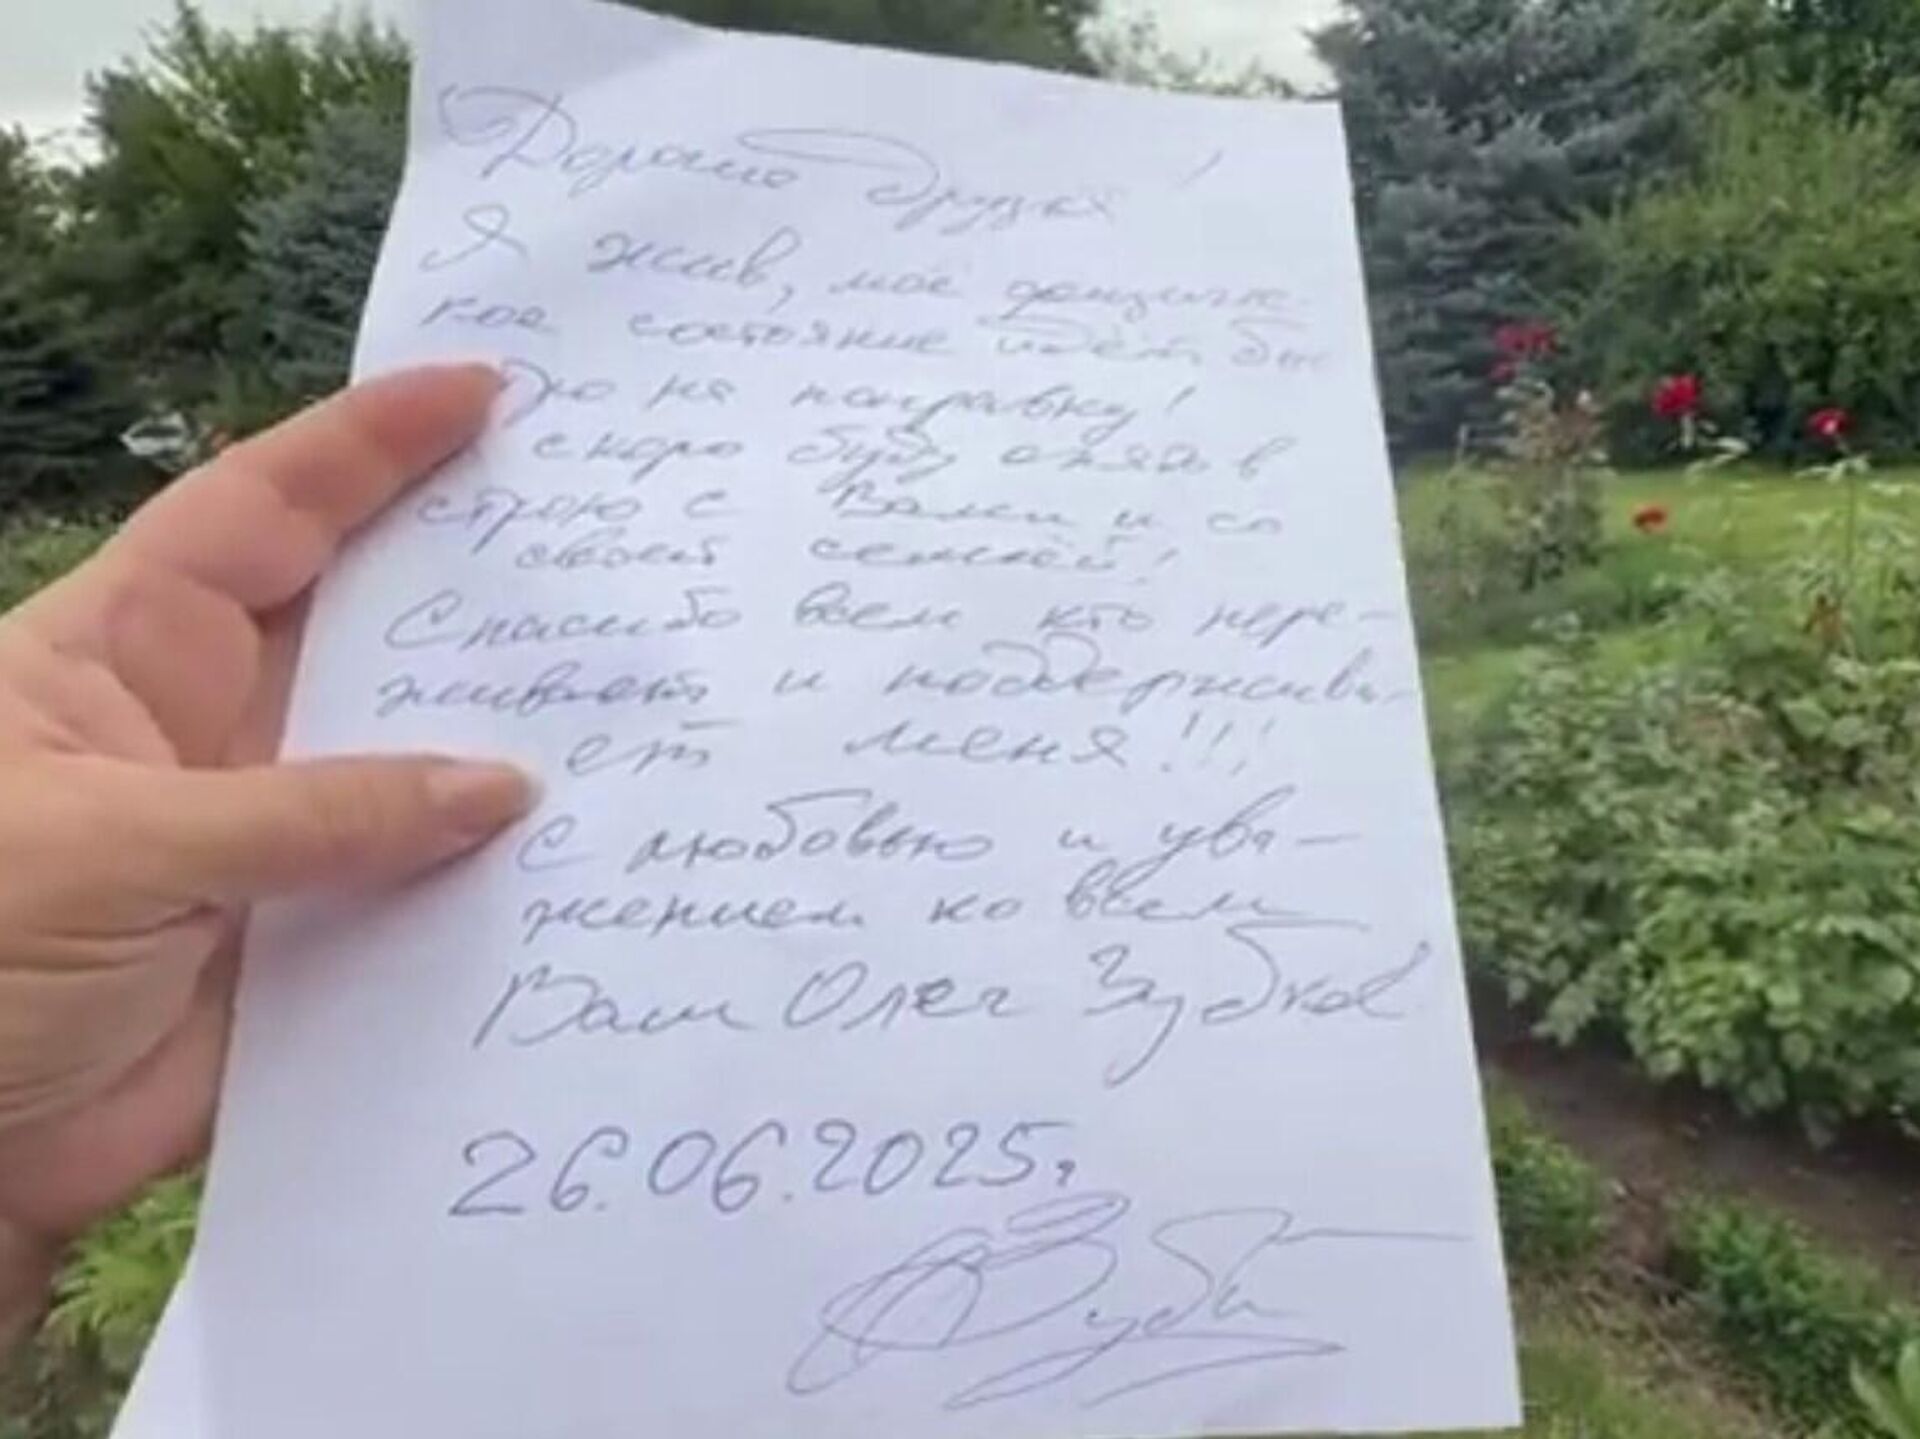 Дорогие друзья!
Я жив, моё физичес-
кое состояние идёт быс
ро на поправку!
скоро буду опять в
строю с Вами и со
своей семьёй!
Спасибо всем кто пере-
живает и поддержива-
ет меня!!!
С любовью и ува-
жением ко всем
Ваш Олег Зубков
26.06.2025г.